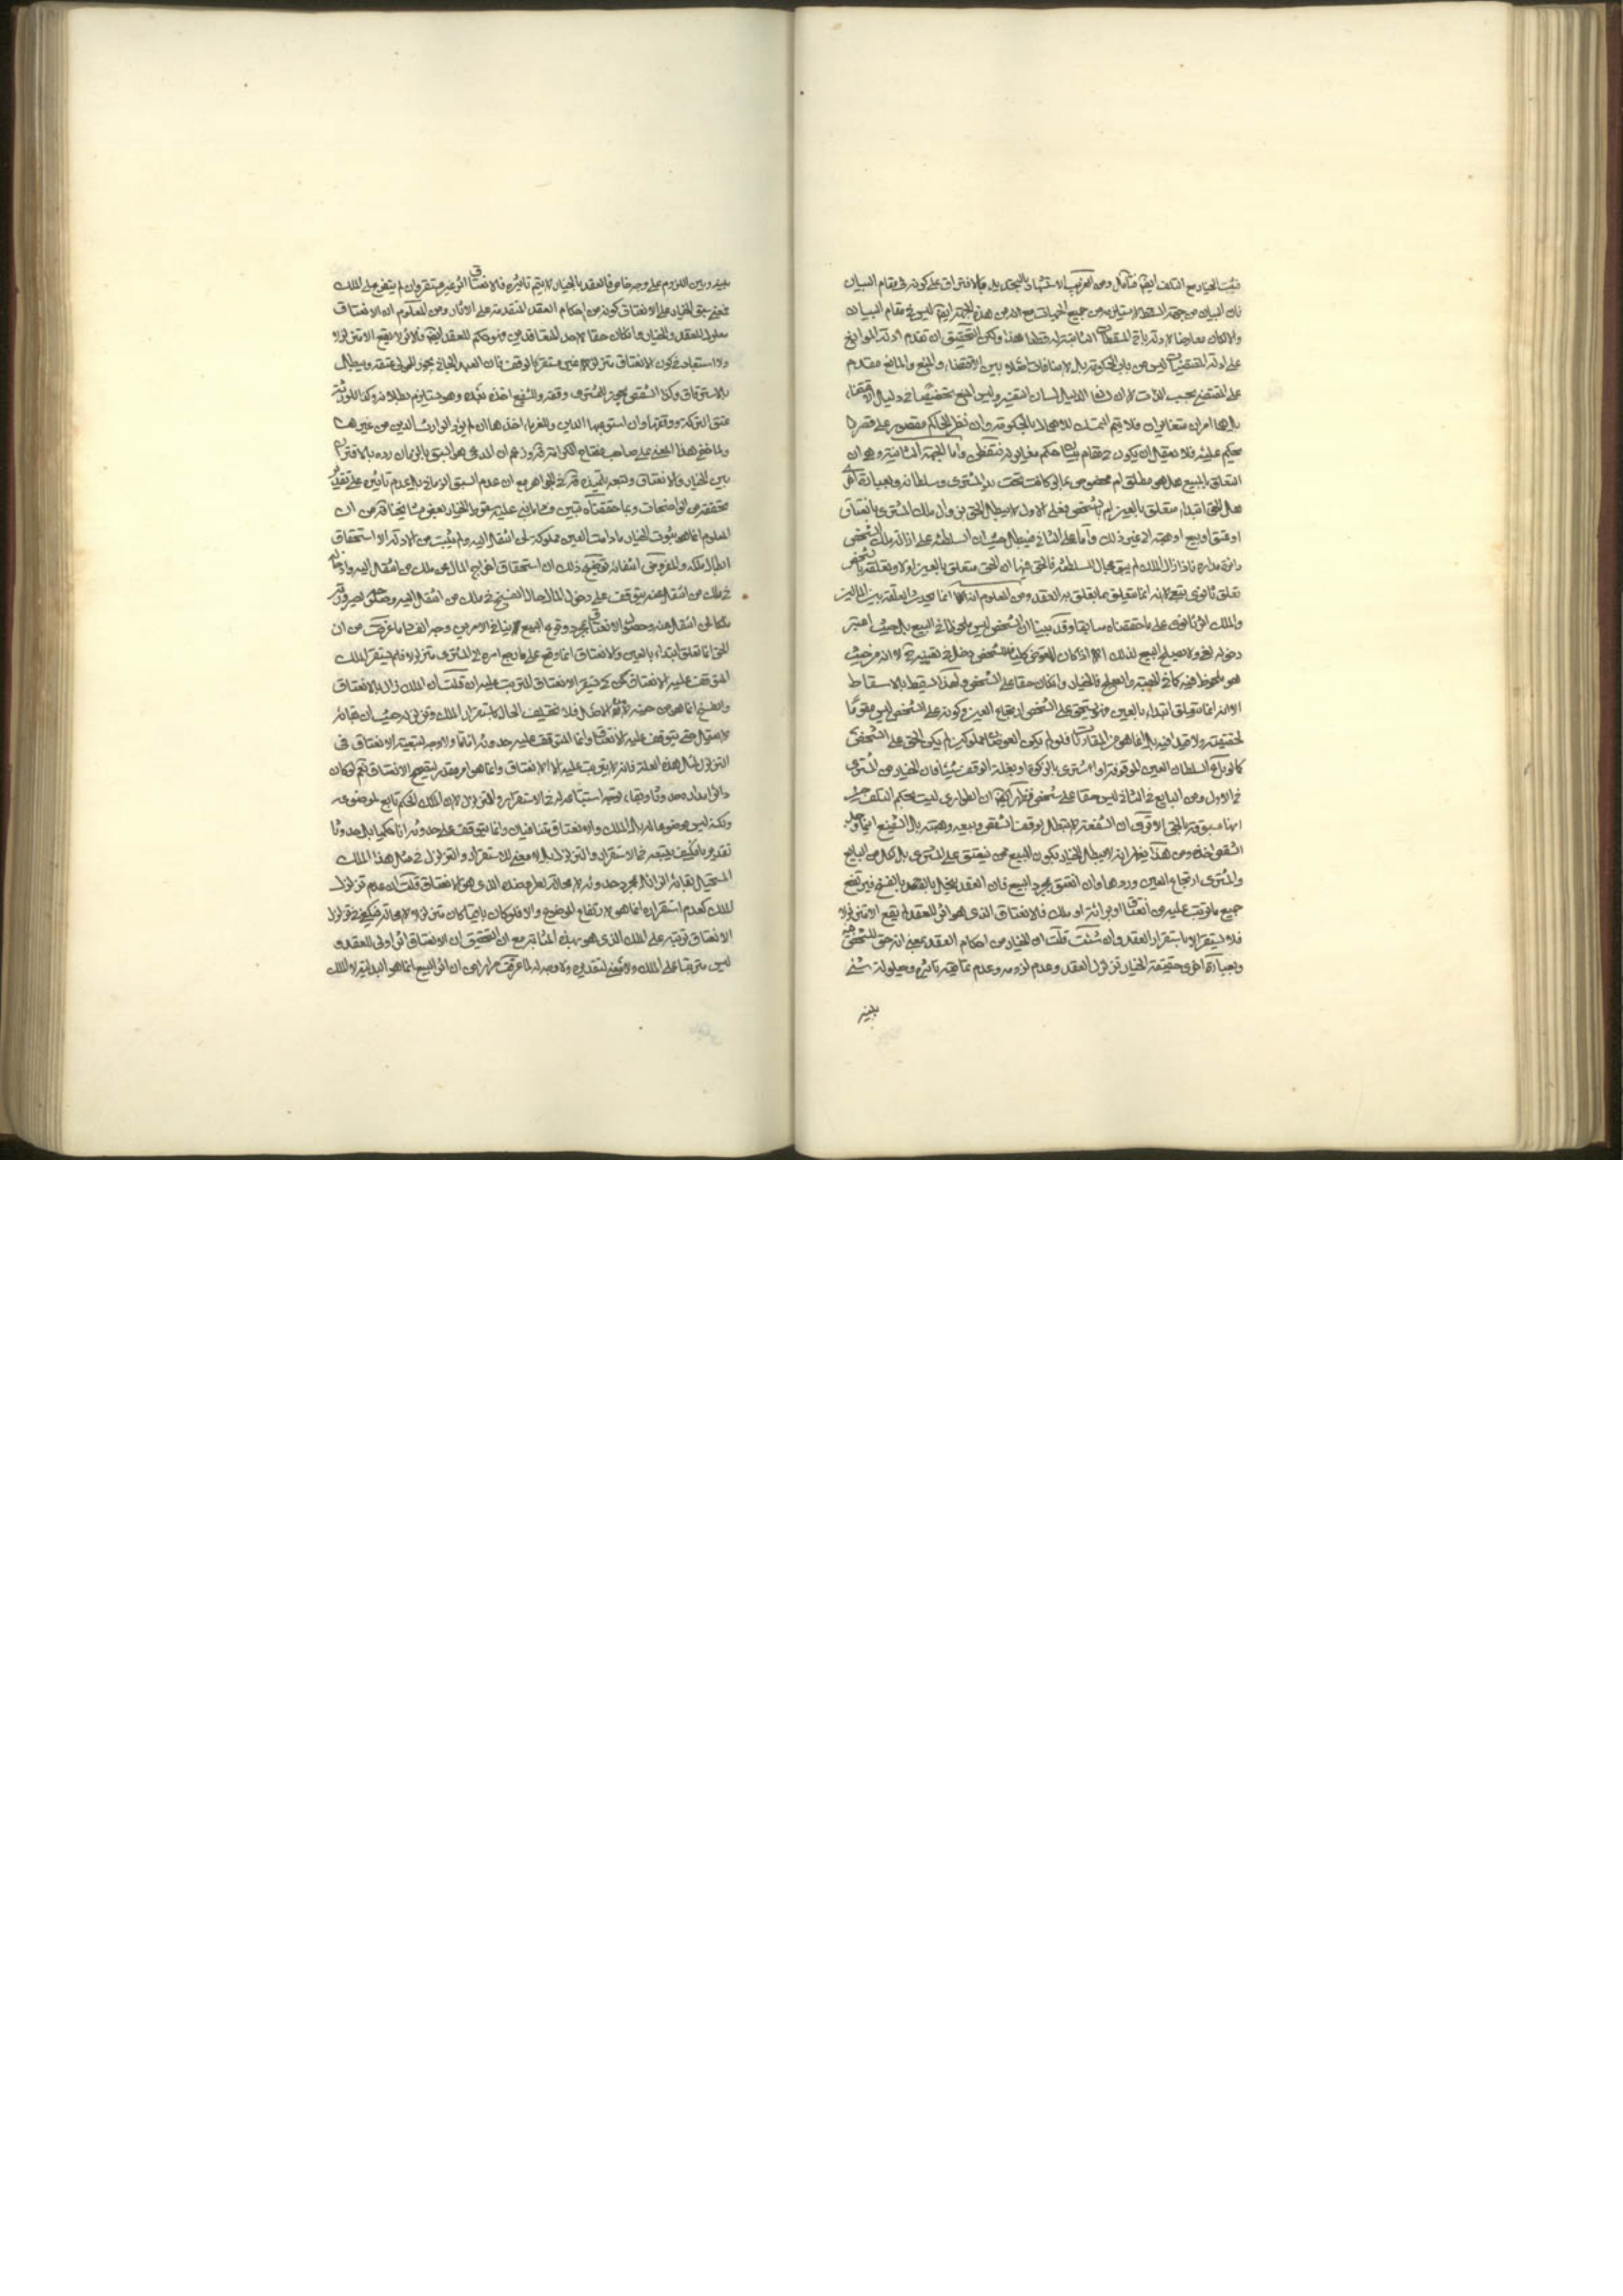 فثبت الخيار مع التلف ايضا فتأمل ومن الغريب الاستشهاد بالتحديد بالافتراق على كونه في مقام البيان
فان البيان من جهة السقط لا يستلزمه من جميع الجهات مع انه من هذه الجهة ايضا ليس في مقام البيان
والا كان معارضا لادلة باقي المسقطات الثابتة له قطعا هذا ولكن التحقيق ان تقدم ادلة الموانع
على ادلة المقتضيات ليس من باب الحكومة بل لا منافات بين الاقتضاء والمنع والمانع مقدم
على المقتضي بحسب الذات لان لسان الدليل لسان التقييد وليس المنع تخصيصا في دليل الاقتضاء
بل هما امران متغايران فلا يتم التمسك للاهمال بالحكومة وان نظر الحاكم مقصور على قصر ما
حكم عليه فلا يعقل ان يكون في مقام بيان حكم مغاير له فتفطن واما الجهة الثانية وهو ان
التعلق بالمبيع هل هو مطلق ام مخصوص بما اذا كانت تحت يد المشتري وسلطانه وبعبارة اخرى
هل الحق ابتداء متعلق بالعين ام بالشخص فعلى الاول لا يبطل الحق بزوال ملك المشتري بانعتاق
او عتق او بيع او هبة الا غير ذلك واما على الثاني فيبطل حيث ان السلطنة على ازالة ملك الشخص
دائرة مداره فاذا زال الملك لم يبق مجال للسلطنة فالحق فيها ان الحق متعلق بالعين اولا وتعلقه بالشخص
تعلق ثانوي تبعي لانه انما يتعلق بما يتعلق به العقد ومن المعلوم انه انما يحدث العلقة بين المالين
والملك اثر ثانوي على ما حققناه سابقا وقد بينا ان الشخص ليس ملحوظا في البيع بل حيث اعتبر
دخوله لغو ولا يصلح البيع لذلك الا اذا كان العوض كليا فللشخص دخل في تعيينه لا انه من حيث
هو ملحوظ فيه كما في الهبة والصلح فالخيار وان كان حقا على الشخص ولهذا يسقط بالاسقاط
الا انه انما يتعلق ابتداء بالعين فهو يستحق على الشخص ارتجاع العين وكونه على الشخص ليس مقوما
لحقيقته ولا قيدا فيه بل انما هو من المقارنات فلو لم يكن العوضان مملوكين لم يكن الحق على الشخص
كما لو باع السلطان العين الموقوفة او اشترى بالزكوة او بغلة الوقف شيئا فان الخيار من المشتري
في الاول ومن البايع في الثاني ليس حقا على شخص فظهر ايضا ان الطواري ليست بحكم التلف حيث
انها مسبوقة بالحق الاقوى ان الشفعة لا تبطل بوقف الشقص وبيعه وهبته بل الشفيع اينما وجد
الشقص اخذه ومن هذا يظهر انه لا يبطل الخيار بكون المبيع ممن ينعتق على المشتري بل لكل من البايع
والمشتري ارتجاع العين وردها وان انعتق بمجرد البيع فان العقد ينحل بالفسخ فيرتفع
جميع ما ترتب عليه من انعتاق او براءة او ملك فالانعتاق الذي هو اثر للعقد لم يقع الا متزلزلا
فلا يستقر الا باستقرار العقد وان شئت قلت ان الخيار من احكام العقد بمعنى انه حق للشخص
وبعبارة اخرى حقيقة الخيار تزلزل العقد وعدم لزومه وعدم تمامية تاثيره وحيلولة شيء
بينه
بينه وبين اللزوم على وجه خاص فالعقد بالخيار لا يتم تاثيره فالانعتاق اثر غير مستقر وان لم يتفرع على الملك
فمعنى سبق الخيار على الانعتاق كونه من احكام العقد المتقدمة على الاثار ومن المعلوم ان الانعتاق
معلول للعقد والخيار وان كان حقا لاحد المتعاقدين فهو حكم للعقد ايضا فالاثر لا يقع الا متزلزلا
ولا استبعاد في كون الانعتاق متزلزلا غير مستقر كالوقف فان العبد الجاني يجوز للمولى عتقه ويبطل
بالاسترقاق وكذا الشقص يجوز للمشتري وقفه وللشفيع اخذه بعده وهو مستلزم بطلانه وكذا للورثة
عتق التركة ووقفها وان استوعبها الدين وللغرماء اخذها ان لم يؤد الوارث الدين من غيرها
ولما خفي هذا المعنى على صاحب مفتاح الكرامة قده وزعم ان المدعى هو السبق بالزمان رده بالاقتران
بين الخيار والانعتاق وتبعه تلميذه قده في الجواهر مع ان عدم السبق الزماني بل عدم تاثيره على تقدير
تحققه من الواضحات وبما حققناه تبين فساد ما بني عليه سقوط الخيار بعض مشايخنا قده من ان
المعلوم انما هو ثبوت الخيار ما دامت العين مملوكة لمن انتقل اليه ولم يثبت من الادلة الا استحقاق
ابطال ملكه والمفروض انتفائه توضيح ذلك ان استحقاق اخراج المال عن ملك من انتقل اليه وادخاله
في ملك من انتقل عنه يتوقف على دخول المال حال الفسخ في ملك من انتقل اليه وحصول صيرورته
ملكا لمن انتقل عنه وحصول الانعتاق بمجرد وقوع البيع ينافي الامرين وجه الفساد ما عرفت من ان
الحق انما تعلق ابتداء بالعين والانعتاق انما وقع على ما رجع امره الى المشتري متزلزلا فلم يستقر الملك
المتوقف عليه الانعتاق لكي يستقر الانعتاق المترتب عليه ان قلت ان الملك زال بالانعتاق
والفسخ انما هو من حينه لا من الاصل فلا تختلف الحال باستقرار الملك وتزلزله حيث ان بقائه
لا يستحيل حتى يتوقف عليه الانعتاق وانما المتوقف عليه حدوثه انا ما ولا وجه لتبعية الانعتاق في
التزلزل لمثل هذه العلة فانه لا يترتب عليه الا الانعتاق وانما هو امر مقدر ليصح الانعتاق نعم لو كان
دائرا مداره حدوثا وبقاء توجه استتباعه له في الاستقرار والتزلزل لان الملك الحكم تابع لموضوعه
ولكنه ليس موضوعا له بل الملك والانعتاق متنافيان وانما يتوقف على حدوثه انا حكميا بل حدوثا
تقديريا فكيف يتبعه في الاستقرار والتزلزل بل لا معنى للاستقرار والتزلزل في مثل هذا الملك
المستحيل بقائه الزائل بمجرد حدوثه لا محالة لعروض ضده الذي هو الانعتاق قلت ان عدم تزلزل
الملك كعدم استقراره انما هو لارتفاع الموضوع والا فلو كان باقيا كان متزلزلا لا محالة فيكفي في تزلزل
الانعتاق ترتبه على الملك الذي هو بهذه المثابة مع ان التحقيق ان الانعتاق اثر اولي للعقد و
ليس مترتبا على الملك ولا معنى لتقديره ولا وجه له لما عرفت مرارا من ان اثر البيع انما هو البدلية لا الملك